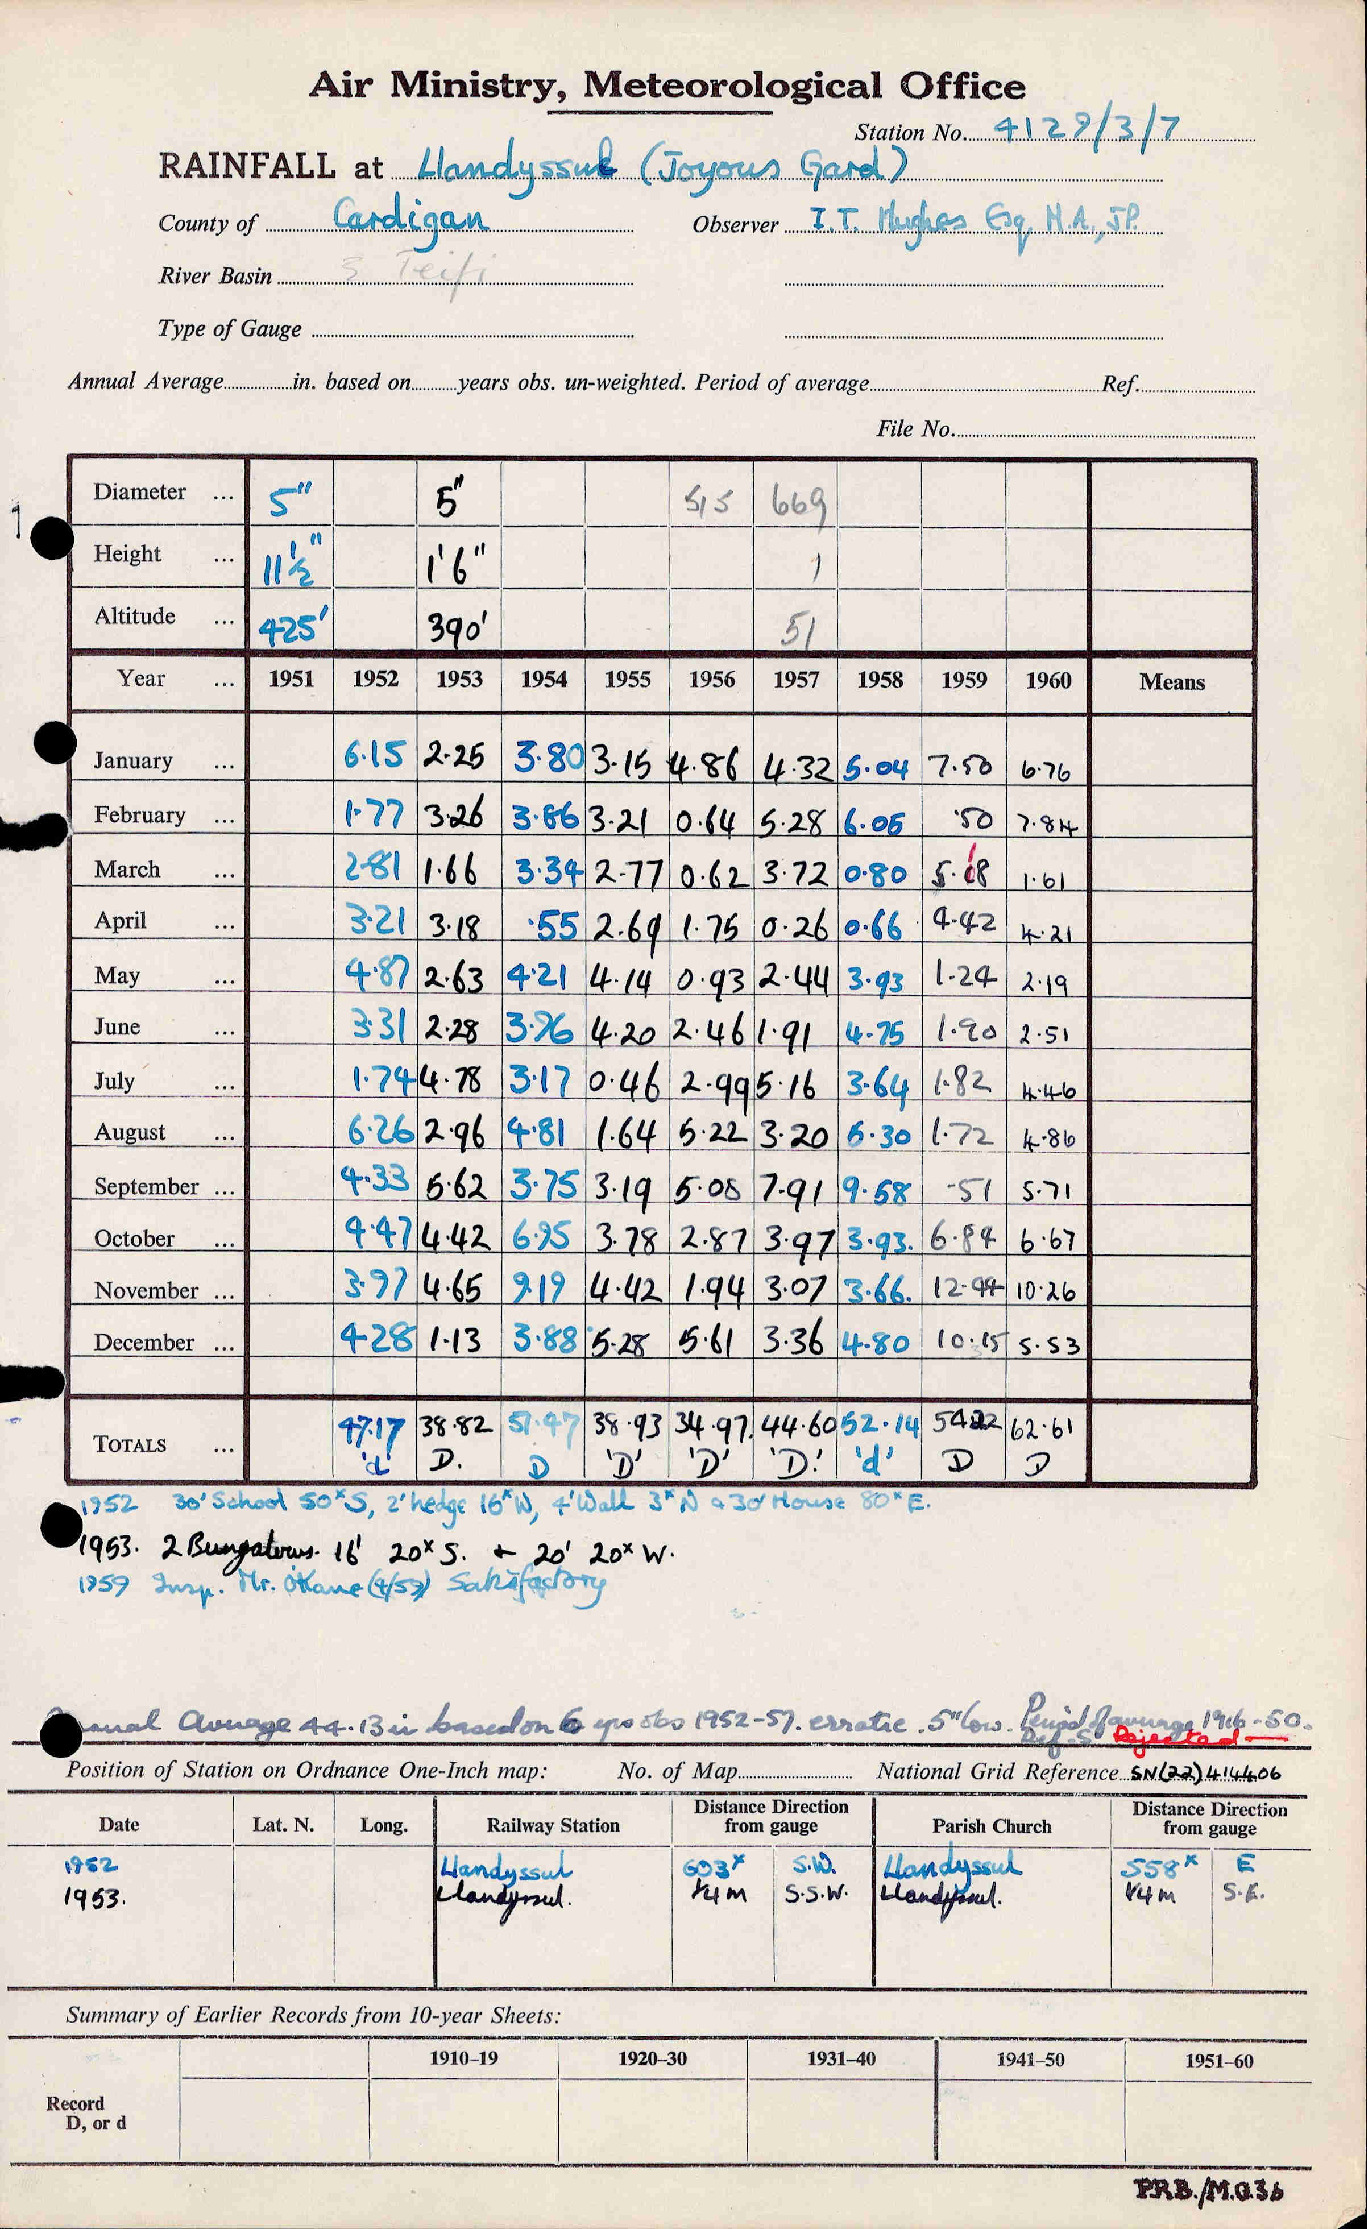 Air Ministry, Meteorological Office
Station No. 4129/3/7
RAINFALL at Llandyssul (Joyous Gard)
County of Cardigan Observer I.T. Hughes Esq, M.A., J.P.
River Basin S Teifi
Type of Gauge
Annual Average in. based on years obs. un-weighted. Period of average Ref.
File No.
Diameter ... 5" 5" 515 669
1
Height ... 11½" 1'6" 1
Altitude ... 425' 390' 51
Year ... 1951 1952 1953 1954 1955 1956 1957 1958 1959 1960 Means
January ... 6.15 2.25 3.80 3.15 4.86 4.32 5.04 7.50 6.76
February ... 1.77 3.26 3.86 3.21 0.64 5.28 6.05 .50 7.84
March ... 2.81 1.66 3.34 2.77 0.62 3.72 0.80 5.18 1.61
April ... 3.21 3.18 .55 2.69 1.75 0.26 0.66 4.42 4.21
May ... 4.87 2.63 4.21 4.14 0.93 2.44 3.93 1.24 2.19
June ... 3.31 2.28 3.96 4.20 2.46 1.91 4.75 1.90 2.51
July ... 1.74 4.78 3.17 0.46 2.99 5.16 3.64 1.82 4.46
August ... 6.26 2.96 4.81 1.64 5.22 3.20 5.30 1.72 4.86
September ... 4.33 5.62 3.75 3.19 5.08 7.91 9.58 .51 5.71
October ... 4.47 4.42 6.95 3.78 2.87 3.97 3.93. 6.84 6.67
November ... 3.97 4.65 9.19 4.42 1.94 3.07 3.66. 12.44 10.26
December ... 4.28 1.13 3.88 5.28 5.61 3.36 4.80 10.15 5.53
TOTALS ... 47.17 38.82 51.47 38.93 34.97. 44.60 52.14 54.22 62.61
'd' D. D 'D' 'D' 'D.' 'd' D D
1952 30' School 50ˣ S, 2' hedge 16ˣ W, 4' Wall 3ˣ N & 30' House 80ˣ E.
1953. 2 Bungalows. 16' 20ˣ S. & 20' 20ˣ W.
1959 Insp. Mr. O'Kane (4/59) Satisfactory
Annual Average 44.13 in based on 6 yrs obs 1952-57. erratic. 5" low. Period of average 1916-50.
Ref. S Rejected
Position of Station on Ordnance One-Inch map: No. of Map National Grid Reference SN(22)414406
Date Lat. N. Long. Railway Station Distance Direction from gauge Parish Church Distance Direction from gauge
1952 Llandyssul 603ˣ S.W. Llandyssul 558ˣ E
1953. Llandyssul. ¼ m S.S.W. Llandyssul. ¼ m S.E.
Summary of Earlier Records from 10-year Sheets:
1910–19 1920–30 1931–40 1941–50 1951–60
Record
D, or d
P.R.B./M.O.36